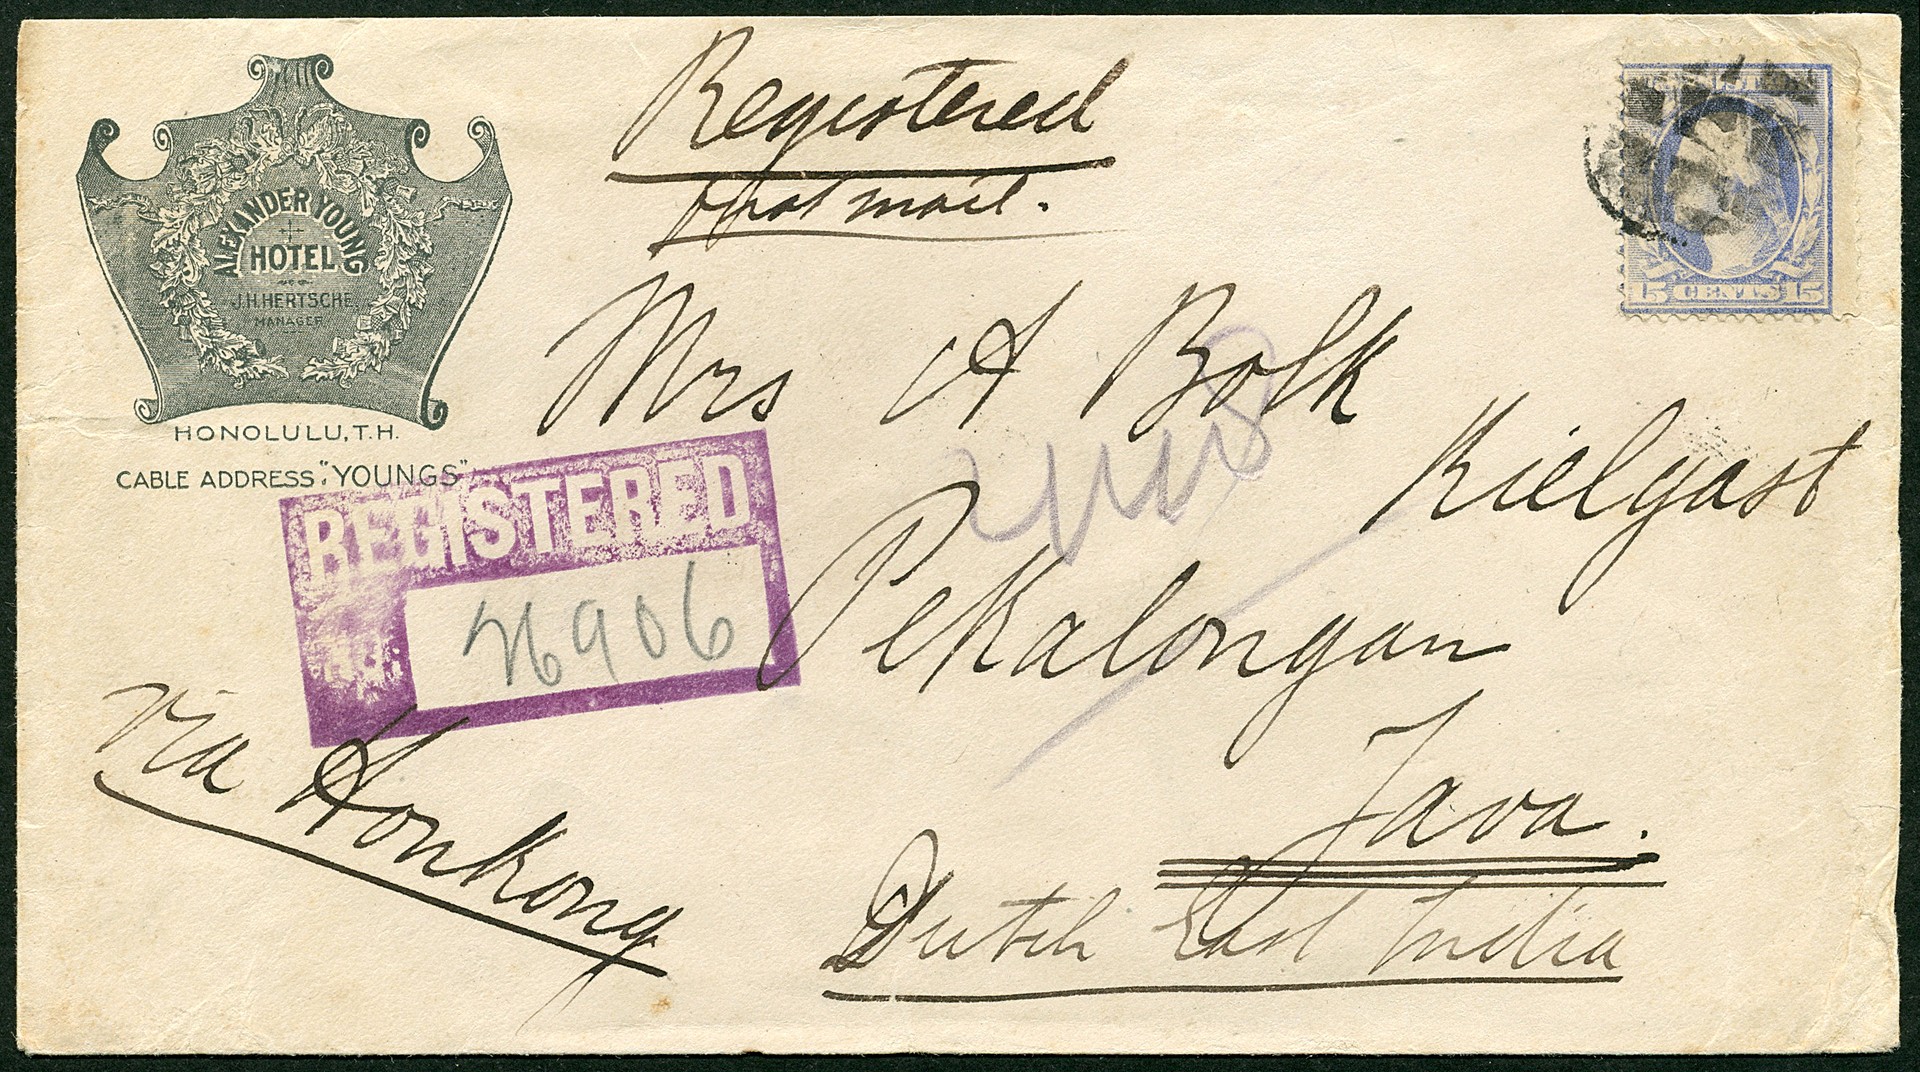 ALEXANDER YOUNG
HOTEL
J.H.HERTSCHE
MANAGER
HONOLULU, T.H.
CABLE ADDRESS: "YOUNGS"
Registered
mail.
15 CENTS 15
Mrs A Bolk
Kielgast
REGISTERED
26906
Pekalongan
Via Honkong
Java.
Dutch East India